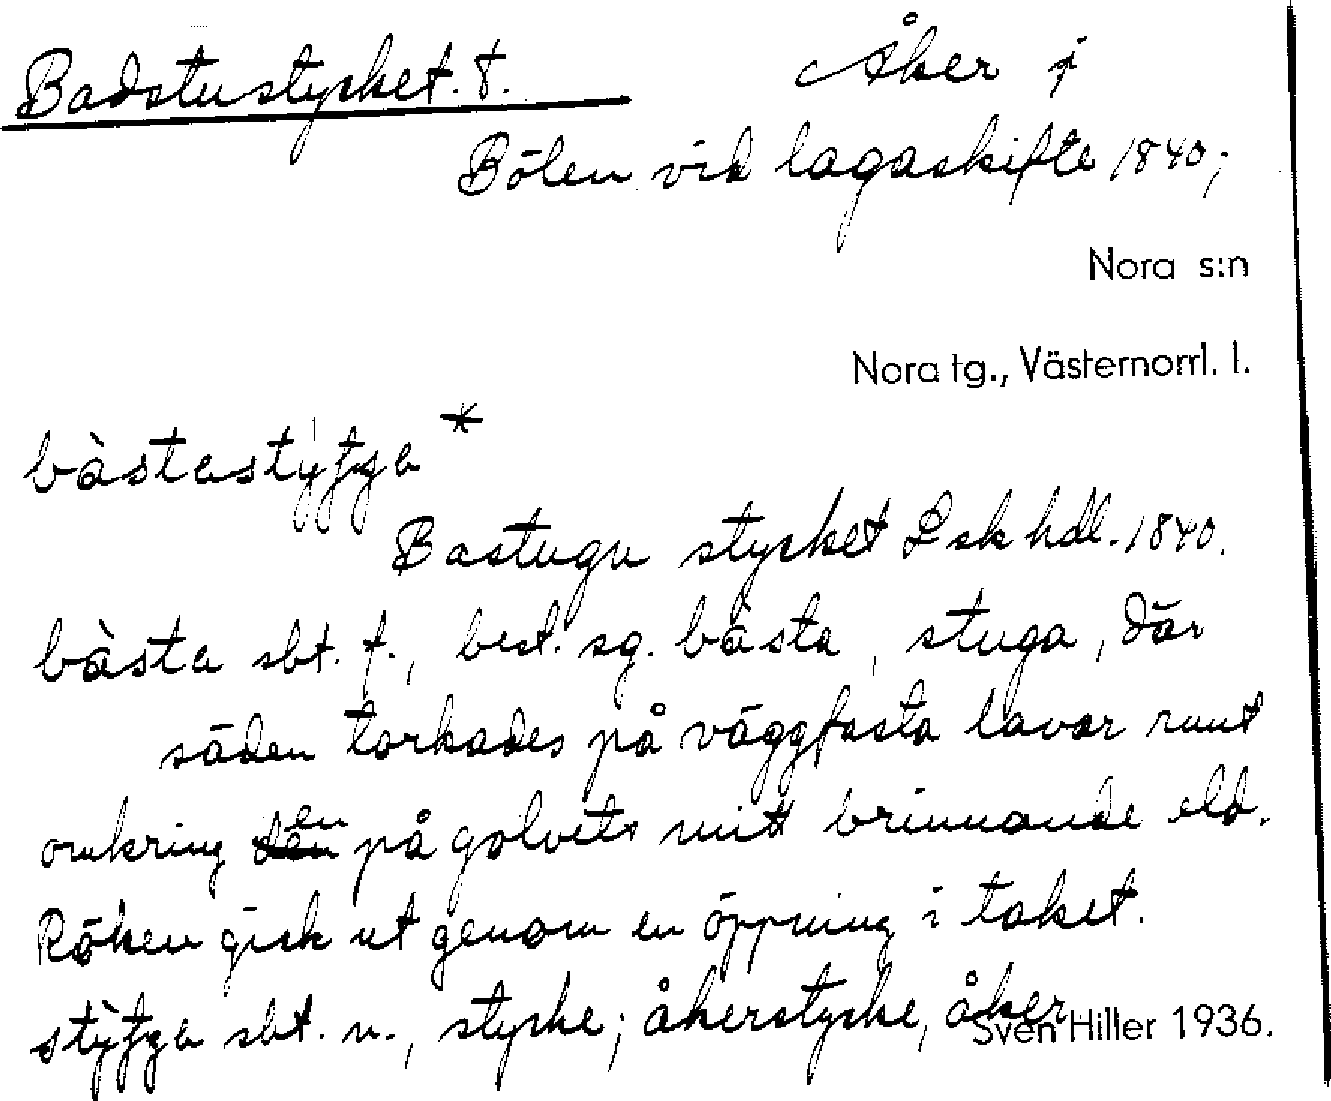 Badstustycket. †. Åker i
Bölen vid lagaskifte 1840;
Nora s:n
Nora tg., Västernorrl. l.
bàstastỳtʒa *
Bastugu stycket Lsk hdl. 1840.
bàsta sbt. f., best. sg. bàsta, stuga, där
säden torkades på väggfasta lavar runt
omkring en på golvets mitt brinnande eld.
Röken gick ut genom en öppning i taket.
stỳtʒa sbt. n., stycke; åkerstycke, åker
Sven Hiller 1936.